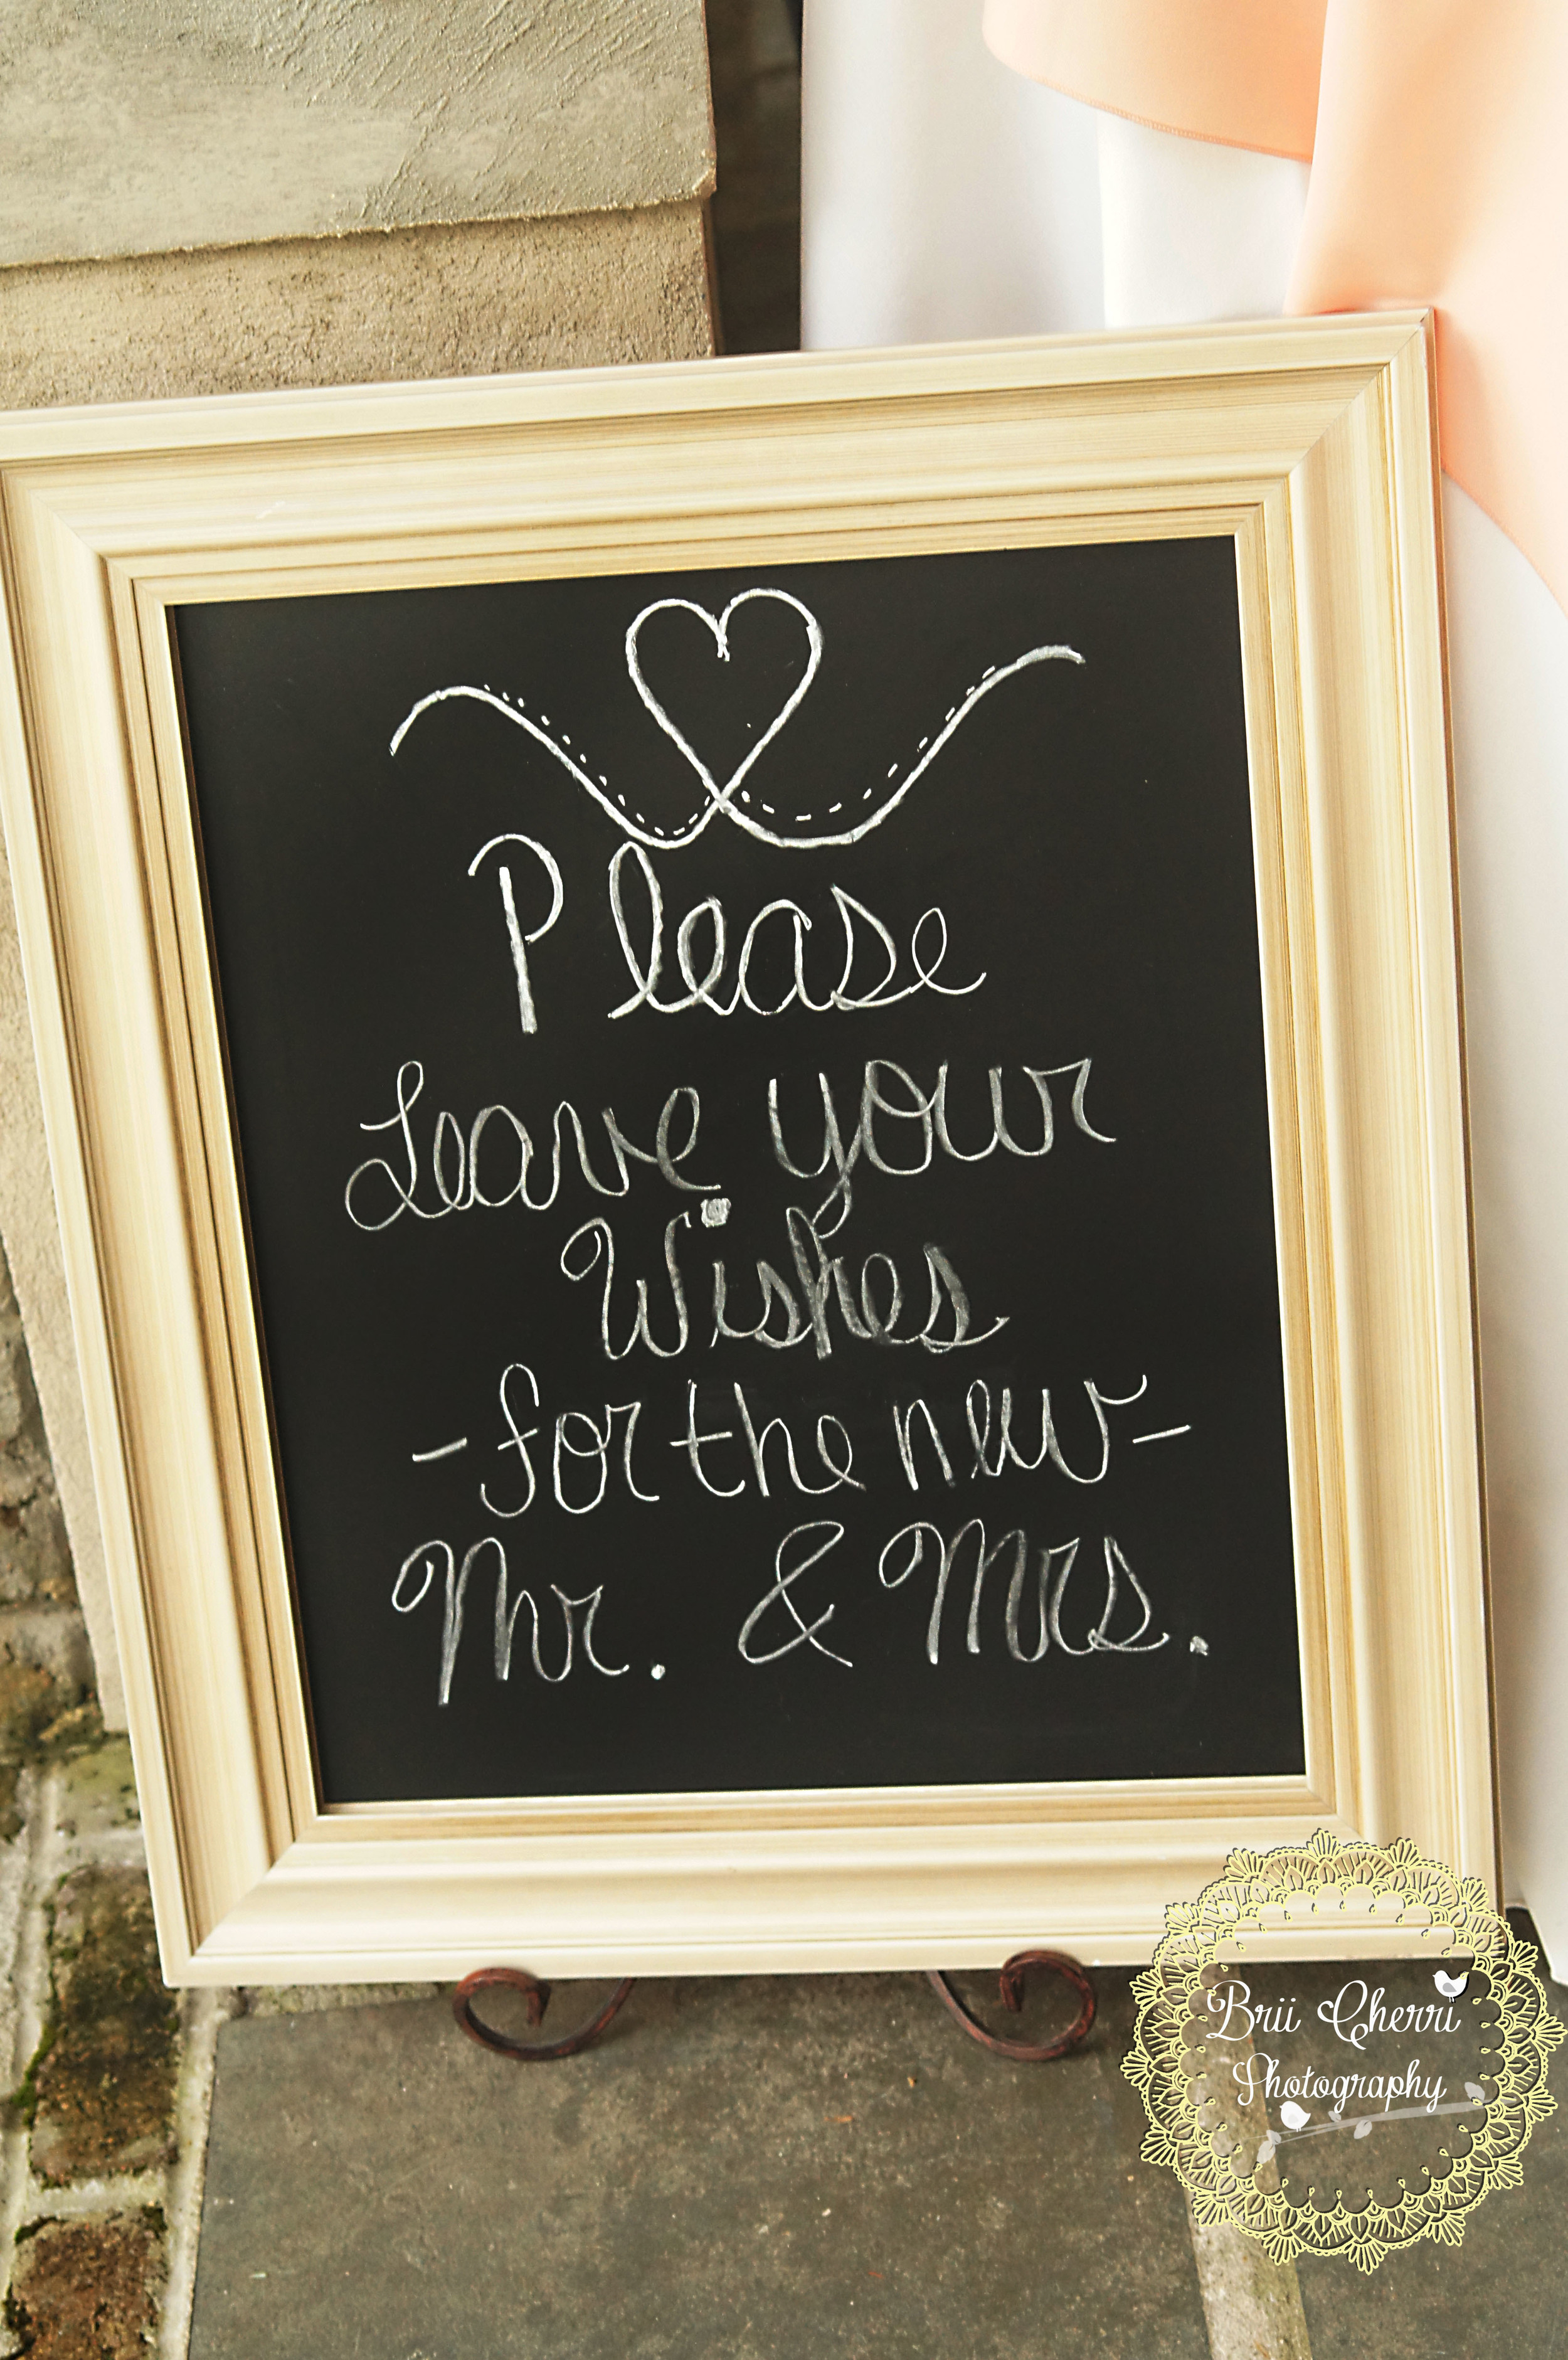 Please
Leave your
Wishes
-for the new-
Mr. & Mrs.
Brii Cherri
Photography